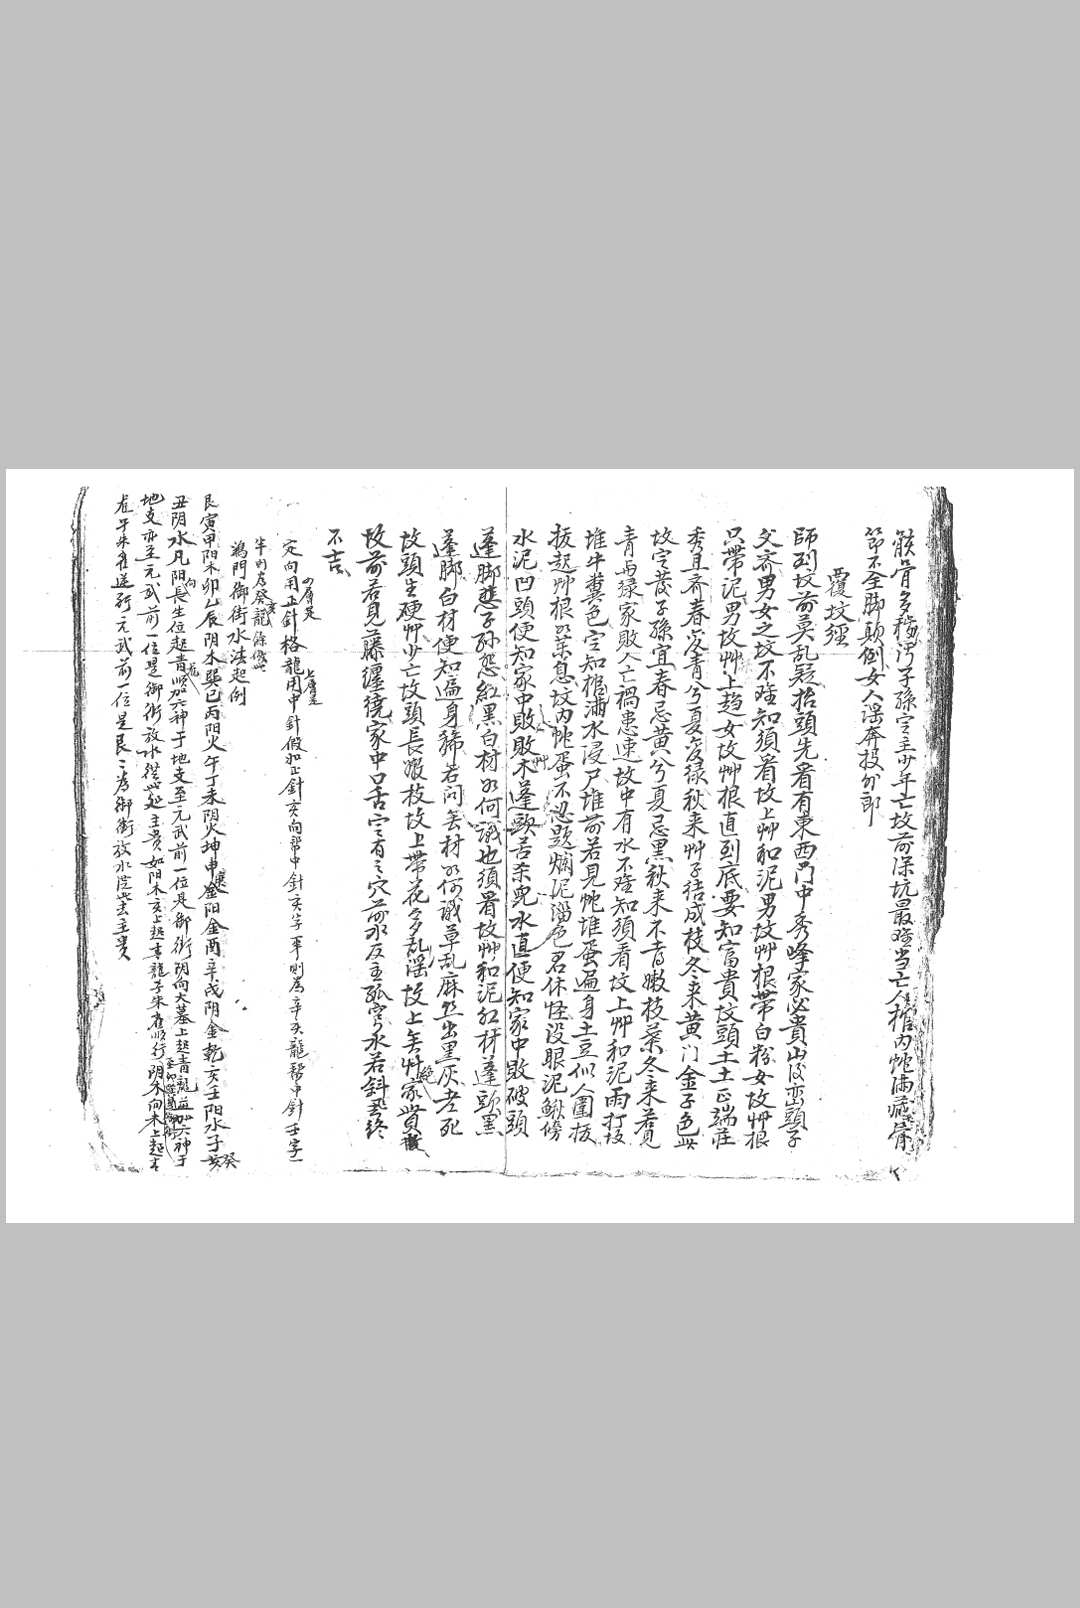 骸骨多穢汚子孫定主少年亡坟前深坑最难当亡人棺内蛇满藏骨
節不全脚顛倒女人淫奔投外郎
覆坟經
師到坟前莫乱疑抬頭先看有東西門中秀峰家必貴山后巒頭子
父齐男女之坟不难知須看坟上艸和泥男坟艸根帶白粉女坟艸根
只帶泥男坟艸上趋女坟艸根直到底要知富貴坟頭土土正端莊
秀且齐春宜青兮夏宜绿秋来艸子结成枝冬来黄门金子色此
坟定發子孫宜春忌黄兮夏忌黑秋来不者嫩枝葉冬来若見
青与绿家敗人亡禍患速坟中有水不难知須看坟上艸和泥雨打坟
堆牛糞色定知棺浦水浸尸堆前若見蛇堆蛋遍身土豆似人圍扳
拔起艸根如葉息坟内蛇蛋不必題烂泥淄色君休怪没眼泥鳅傍
水泥凹頭便知家中敗敗木蓬頭若杀兜水直便知家中敗破頭
蓬脚悲子孙怨紅黑白材如何識也須看坟艸和泥红材蓬頭黑
蓬脚白材便知遍身稀若问無材如何識草乱麻丝出黑灰老死
坟頭生硬艸少亡坟頭長嫩枝坟上帶花多乱淫坟上無艸家貧
坟前若見藤纏繞家中口舌定有之穴前水反主孤寡水若斜飛終
不吉
定向用正針格龍用中針假如正針亥向帮中針亥字半則為辛亥龍帮中針壬字一
半則為癸亥龍餘倣此
鴻門御街水法起例
艮寅甲阳木卯乙辰阴木巽巳丙阳火午丁未阴火坤申庚阳金酉辛戌阴金乾亥壬阳水子癸
丑阴水凡阳向長生位起青龍順加六神于地支至元武前一位是御街阴向大墓上起青龍逆加六神于
地支亦至元武前一位是御街放水從此起主貴如阳木亥上起青龍子朱雀順行阴木向未上起青
龍午朱雀逆行元武前一位是艮艮為御街放水從此去主貴